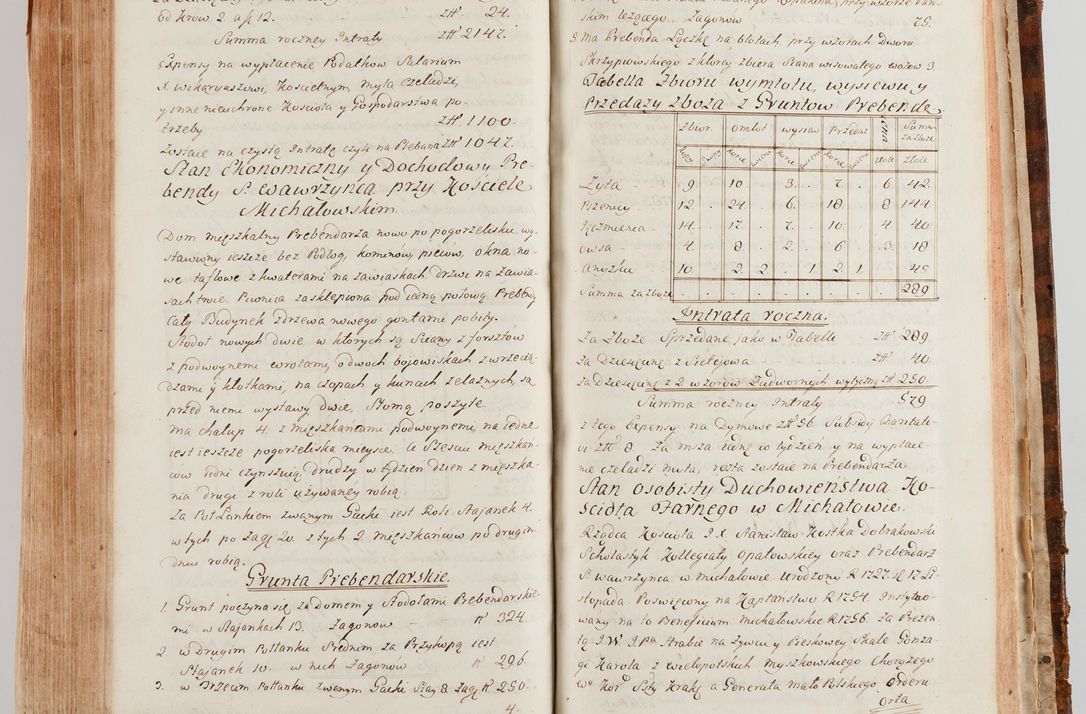 od krow 2. a p. 12. zł 24.
Summa roczney Intraty zł 2147.
Expensy na wypłacenie Podatkow Salarium
X Wikaryuszowi, Koscielnym, myta Czeladzi,
y inne nieuchrone Koscioła y Gospodarstwa po-
trzeby zł 1100.
zostaie na czystą Intratę czyli na Plebana zł 1047.
Stan Ekonomiczny y Dochodowy Pre-
bendy S. Wawrzyńca przy Kościele
Michałowskim.
Dom mięszkalny Prebendarza nowo po pogorzelisku wy-
stawiony ieszcze bez Podłog, kominow, piecow, okna no-
we taflowe z kwaterami na zawiaskach drzwi na zawia-
sach troie. Piwnica zasklepiona pod iedną połową Prebendy
Cały Budynek z drzewa nowego gontami pobity.
Stodoł nowych dwie, w ktorych są Sciany z forsztow
z podwoynemi wrotami, o dwoch bojowiskach z wrzecią-
dzami y kłotkami, na czopach y kunach żelaznych, są
przed niemi wystawy dwie, Słomą poszyte.
Ma chalup 4. z mięszkańcami podwoynemi, na iedne
iest ieszcze pogorzeliska mieysce. Ci Szescie mięszkań-
cow iedni czynszuią drudzy w tydzień dzien z mięszka-
nia drugi z roli używaney robią
Za Połłankiem zwanym Gacki iest Roli Stajanek 4.
w tych po zagę 20. z tych 2 mięszkańcow po drugim
dniu robią.
Grunta Prebendarskie.
1. Grunt poczyna się za Domem y Stodołami Prebendarskie-
mi w Stajankach 13. Zagonow N 324.
2 w drugim Połłanku Srednim za Przykopą iest
Stajanek 10. w nich Zagonow N 296
3. w Trzecim Połłanku zwanym Gacki Stay 8. zagę N 250.
4.
skim leżącego Zagonow 75.
9 Ma Prebenda Łączkę na błotach przy wzorach Dworu
Skrzypiowskiego z ktorey zbiera Siana wisowatego wozow 3.
Tabella Zbioru wymłotu, wysiewu y
Przedaży zboża z Gruntow Prebendę
zbior. omłot wysiew Przedaż cena Summa za zboże
kopy Snopy korce cwierci korce cwierci korce cwierci złote Złote
Żyta . 9. 10 . 3. . 7. . 6 42
Pszenicy . 12 . 24. . 6. . 18. . 8 144
Jęzmienia . 14. . 17. . 7. . 10. . 4 40
Owsa . 4 . 8 . 2. . 6 . 3. 18
Anyżku 10 . 2 2 . 1 2 1 . 45
Summa za zboże . . . . . . . . . 289
Intrata roczna.
Za Zboże Sprzedane jako w Tabelli zł 289
za Dziesięcinę z Sielejowa zł 40.
za Dziesięcinę z 2 wzorow Zadwornych wytyczną zł 250
Summa roczney Intraty 579
z tego Expensy na Dymowe zł 56. Subsidy Charitati-
vi zł 8. Za msza iedną co tydzień y na wypłace-
nie czeladzi myta, reszta zostaie na Prebendarza
Stan osobisty Duchowieństwa Ko-
ścioła Farnego w Michałowie.
Rządca Kościoła J. X. Stanisław Kostka Dobrakowski
Scholastyk Kollegiaty Opatowskiey oraz Prebendarz
S. Wawrzynca w Michałowie Urodzony R 1727. d. 17 Li-
stopada. Poswięcony na Kapłaństwo R 1754. Instytuo-
wany na to Beneficium Michałowskie R 1756. za Prezen-
tą J. W. J Pa. Hrabie na Żywcu y Pieskowey Skale Gonza-
gi Karola z Wielopolskich Myszkowskiego Chorążego
Wo Kor. Ssty Krakę a Generała Mało Polskiego Orderu
Orła